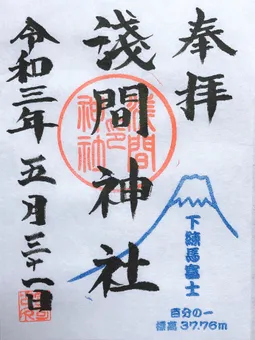 奉拝
淺間神社
令和三年 五月 三十一日
淺間
神社
下練馬富士
百分の一
標高 37.76m